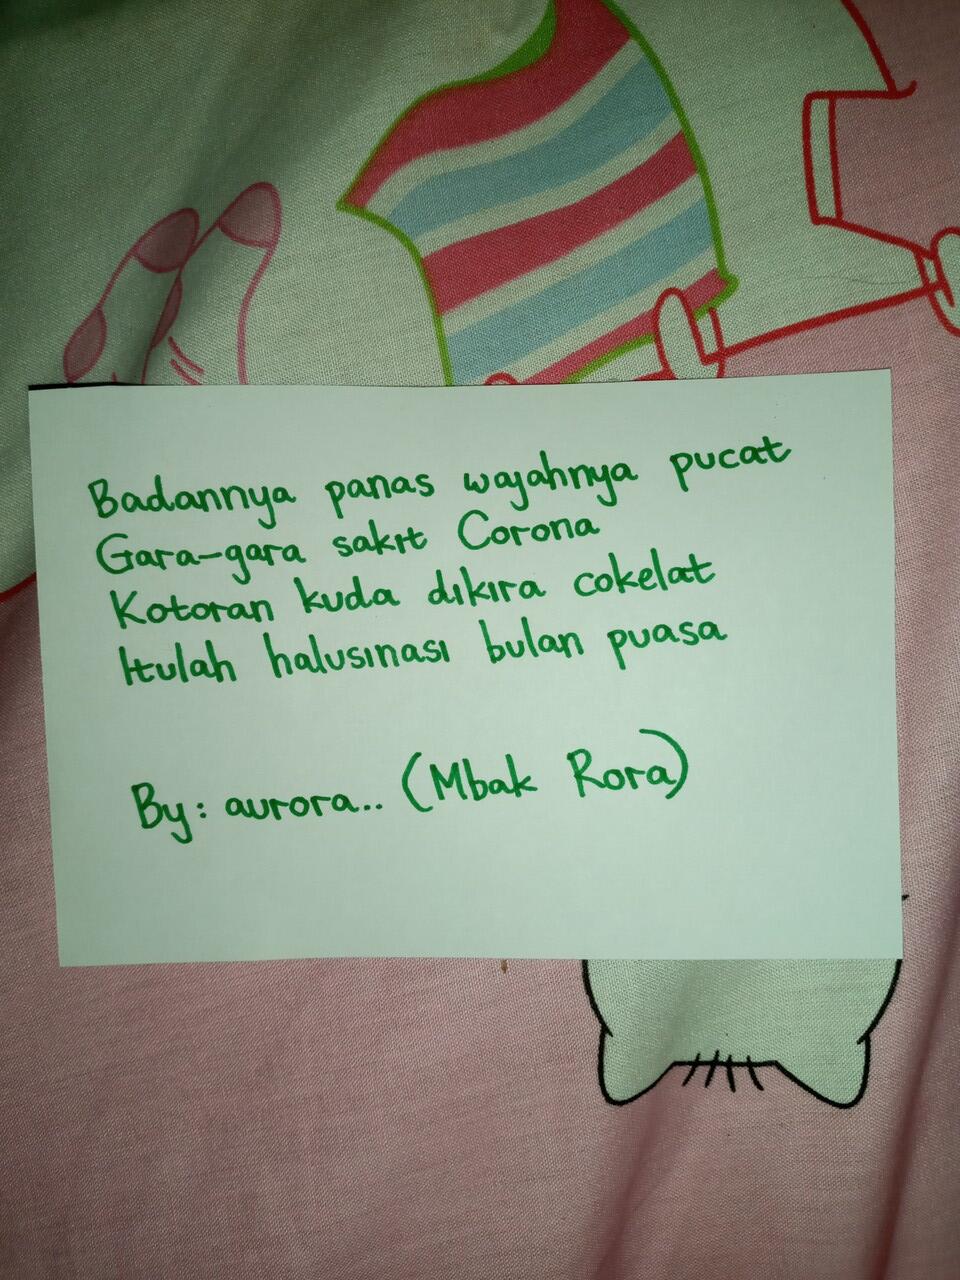 Badannya panas wajahnya pucat
Gara-gara sakit Corona
Kotoran kuda dikira cokelat
Itulah halusinasi bulan puasa
By: aurora.. (Mbak Rora)